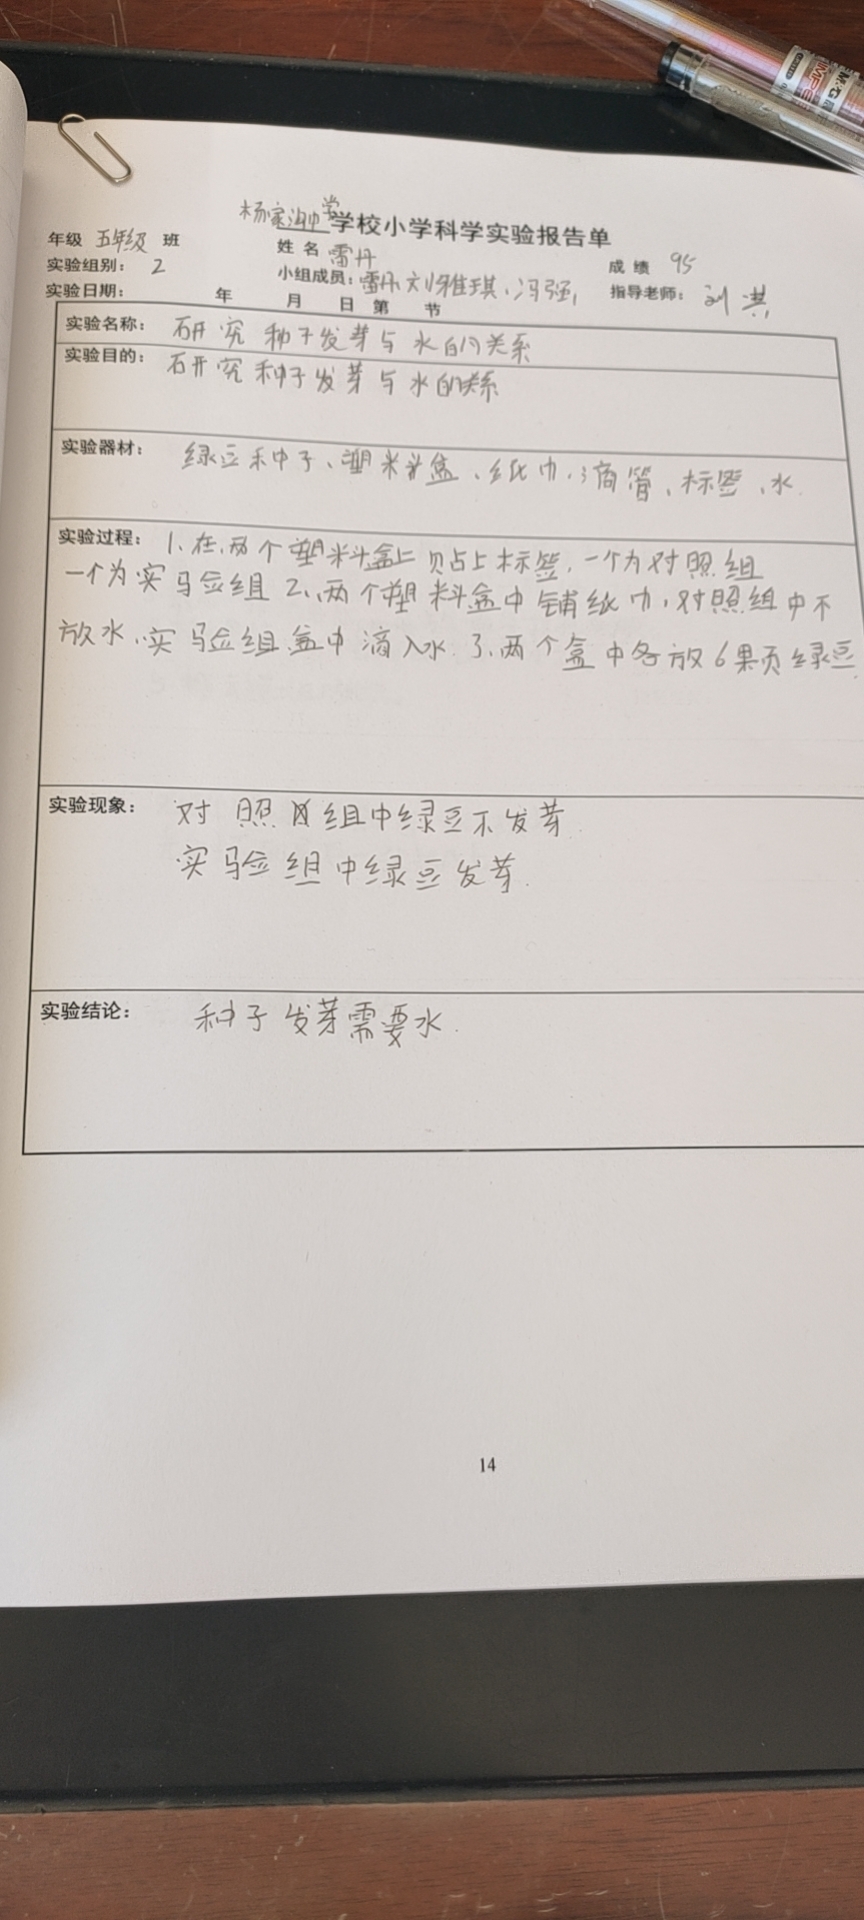 杨家沟中学学校小学科学实验报告单
年级 五年级 班 姓名 雷丹 成绩 95
实验组别： 2 小组成员：雷丹、刘雅琪、冯强 指导老师： 刘洪
实验日期： 年 月 日 第 节
实验名称： 研究种子发芽与水的关系
实验目的： 研究种子发芽与水的关系
实验器材： 绿豆种子、塑料盒、纸巾、滴管、标签、水.
实验过程： 1、在两个塑料盒上贴上标签，一个为对照组
一个为实验组 2、两个塑料盒中铺纸巾，对照组中不
放水，实验组盒中滴入水. 3、两个盒中各放6果页绿豆.
实验现象： 对照组中绿豆不发芽.
实验组中绿豆发芽.
实验结论： 种子发芽需要水.
14